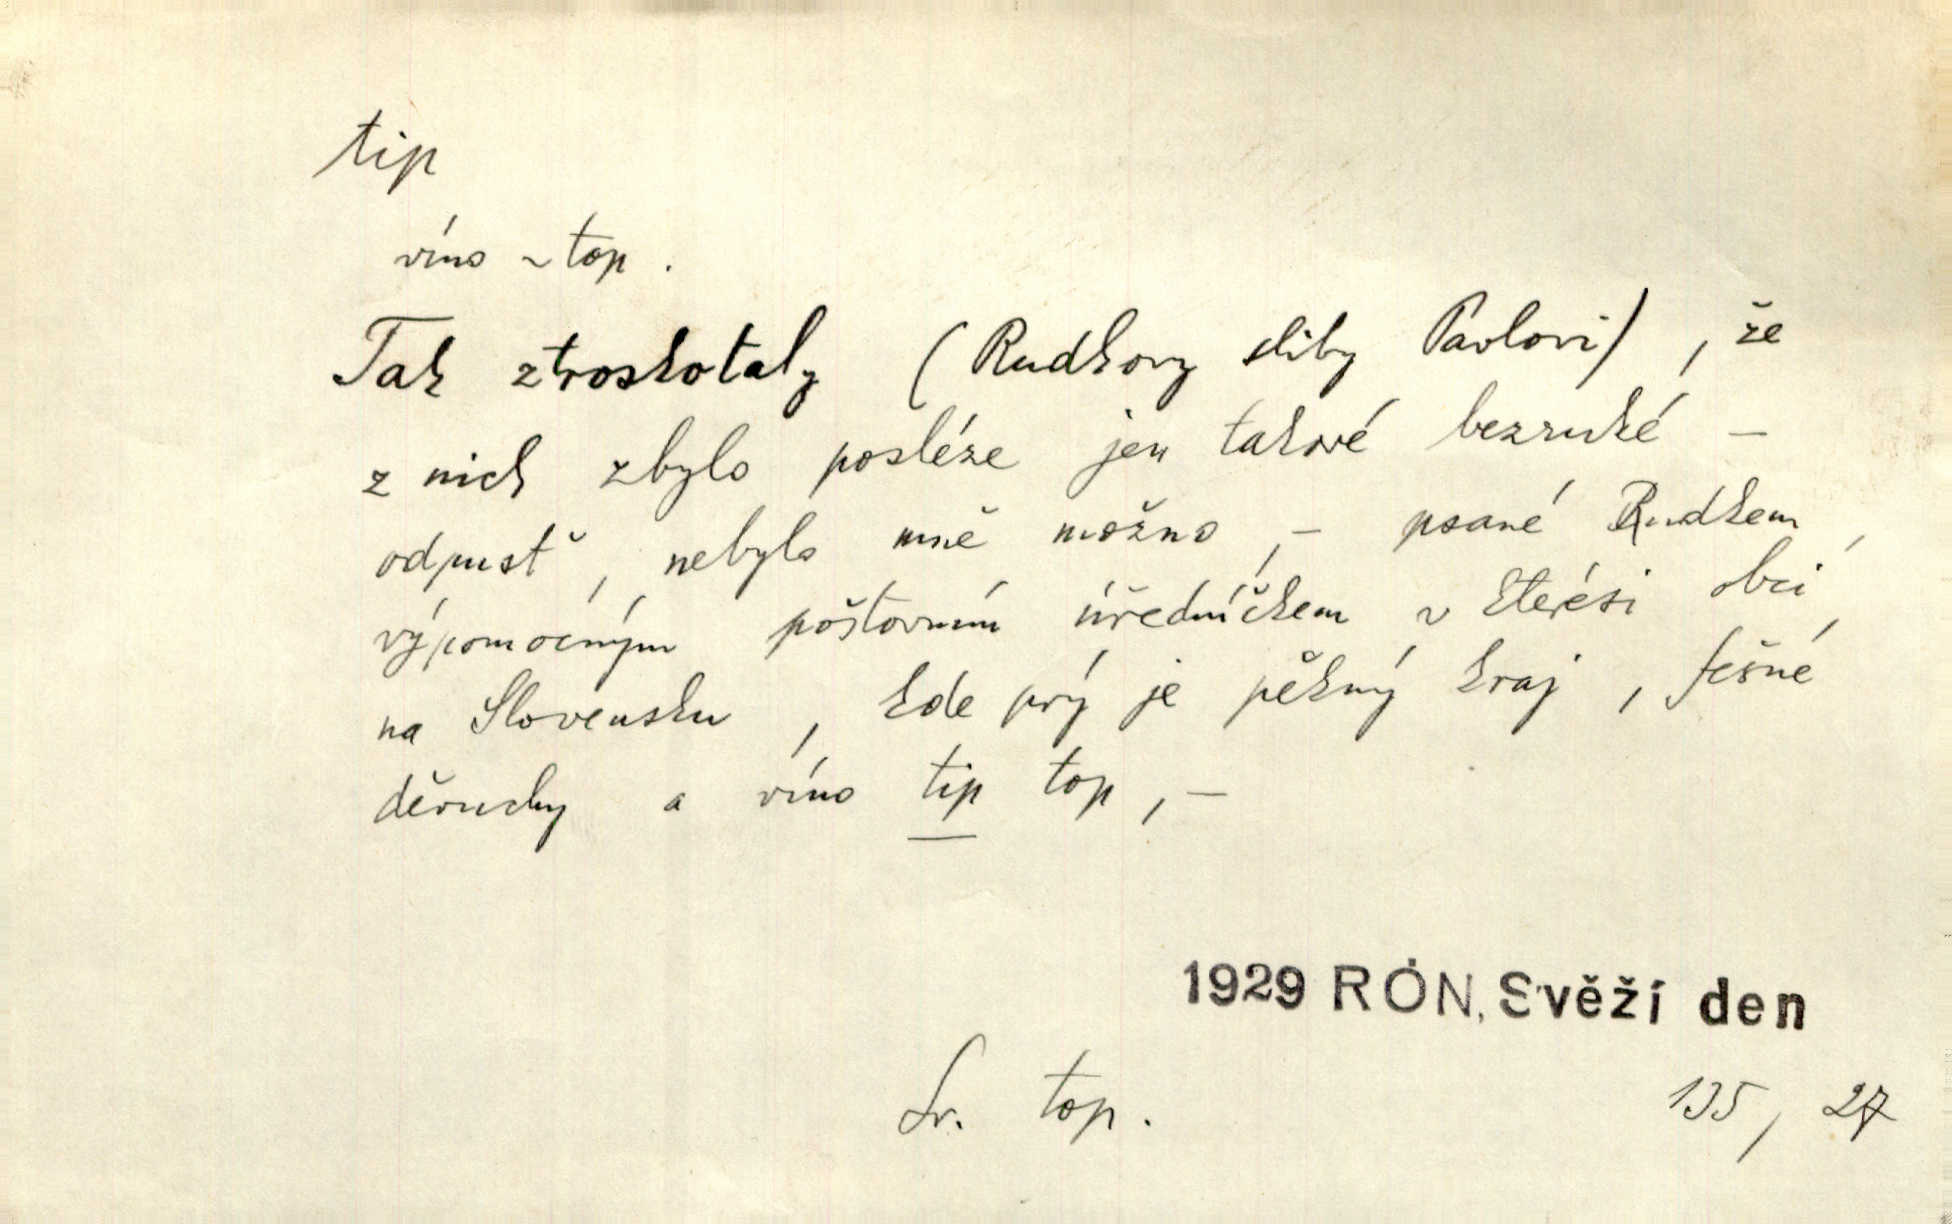 tip
víno ~ top.
Tak ztroskotaly (Rudkovy sliby Pavlovi), že
z nich zbylo posléze jen takové bezruké –
odpusť, nebylo mně možno, – psané Rudkem,
výpomocným poštovním úředníčkem v kterési obci,
na Slovensku, kde prý je pěkný kraj, fešné
děvuchy a víno tip top, –
1929 RÓN, Svěží den
Sr. top. 135, 27